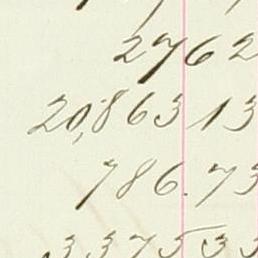 2762
20,863 13
786.73
337533